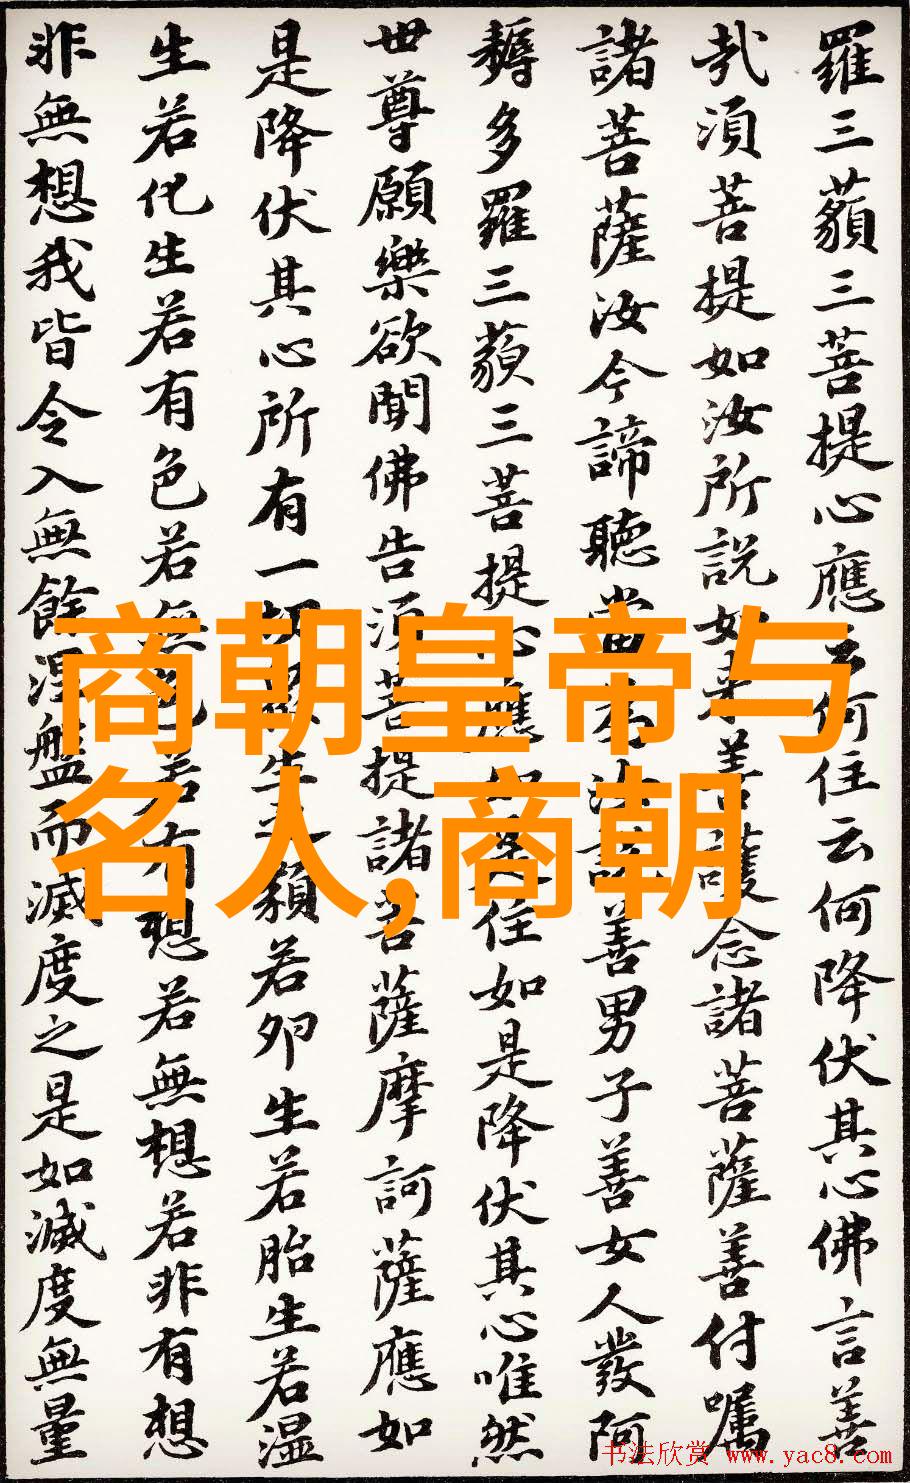 羅三藐三菩提心應云何住云何降伏其心佛言善
哉須菩提如汝所說如来善護念諸菩薩善付嘱
諸菩薩汝今諦聽當為汝說善男子善女人發阿
耨多羅三藐三菩提心應如是住如是降伏其心唯然
世尊願樂欲聞佛告須菩提諸菩薩摩訶薩應如
是降伏其心所有一切衆生之類若卵生若胎生若湿
生若化生若有色若無色若有想若無想若非有想
非無想我皆令入無餘涅盤而滅度之是如滅度無量
商朝皇帝与
名人,商朝
书法欣赏 www.yac8.com